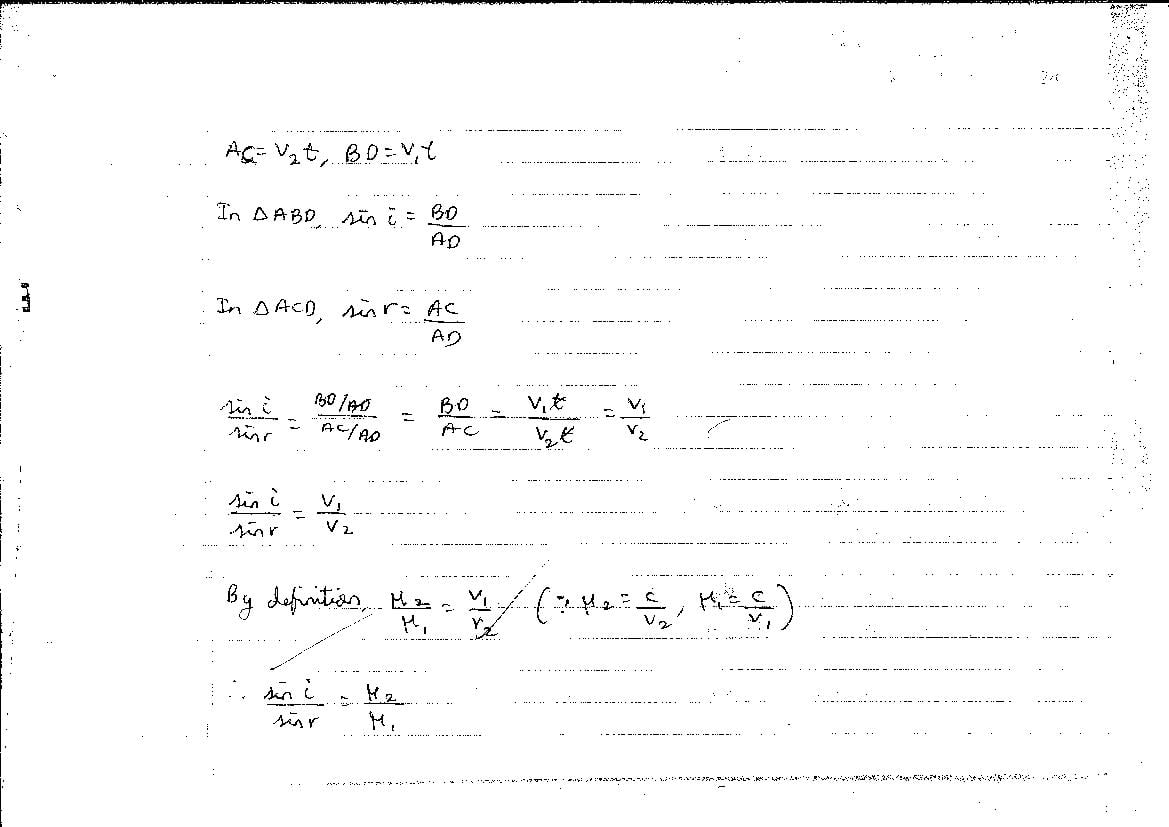 AC = V₂t, BD = V₁t
In △ABD, sin i = BD/AD
In △ACD, sin r = AC/AD
sin i / sin r = (BD/AD)/(AC/AD) = BD/AC = V₁t/V₂t = V₁/V₂
sin i / sin r = V₁/V₂
By definition, μ₂/μ₁ = V₁/V₂ (∵ μ₂ = c/V₂, μ₁ = c/V₁)
∴ sin i / sin r = μ₂/μ₁